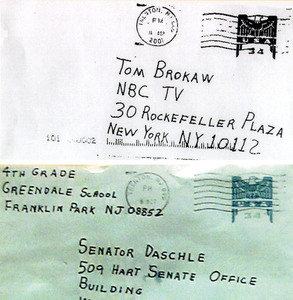 PM
2001
USA
34
TOM BROKAW
NBC TV
30 ROCKEFELLER PLAZA
NEW YORK NY 10112
4TH GRADE
GREENDALE SCHOOL
FRANKLIN PARK NJ 08852
PM
34
SENATOR DASCHLE
509 HART SENATE OFFICE
BUILDING